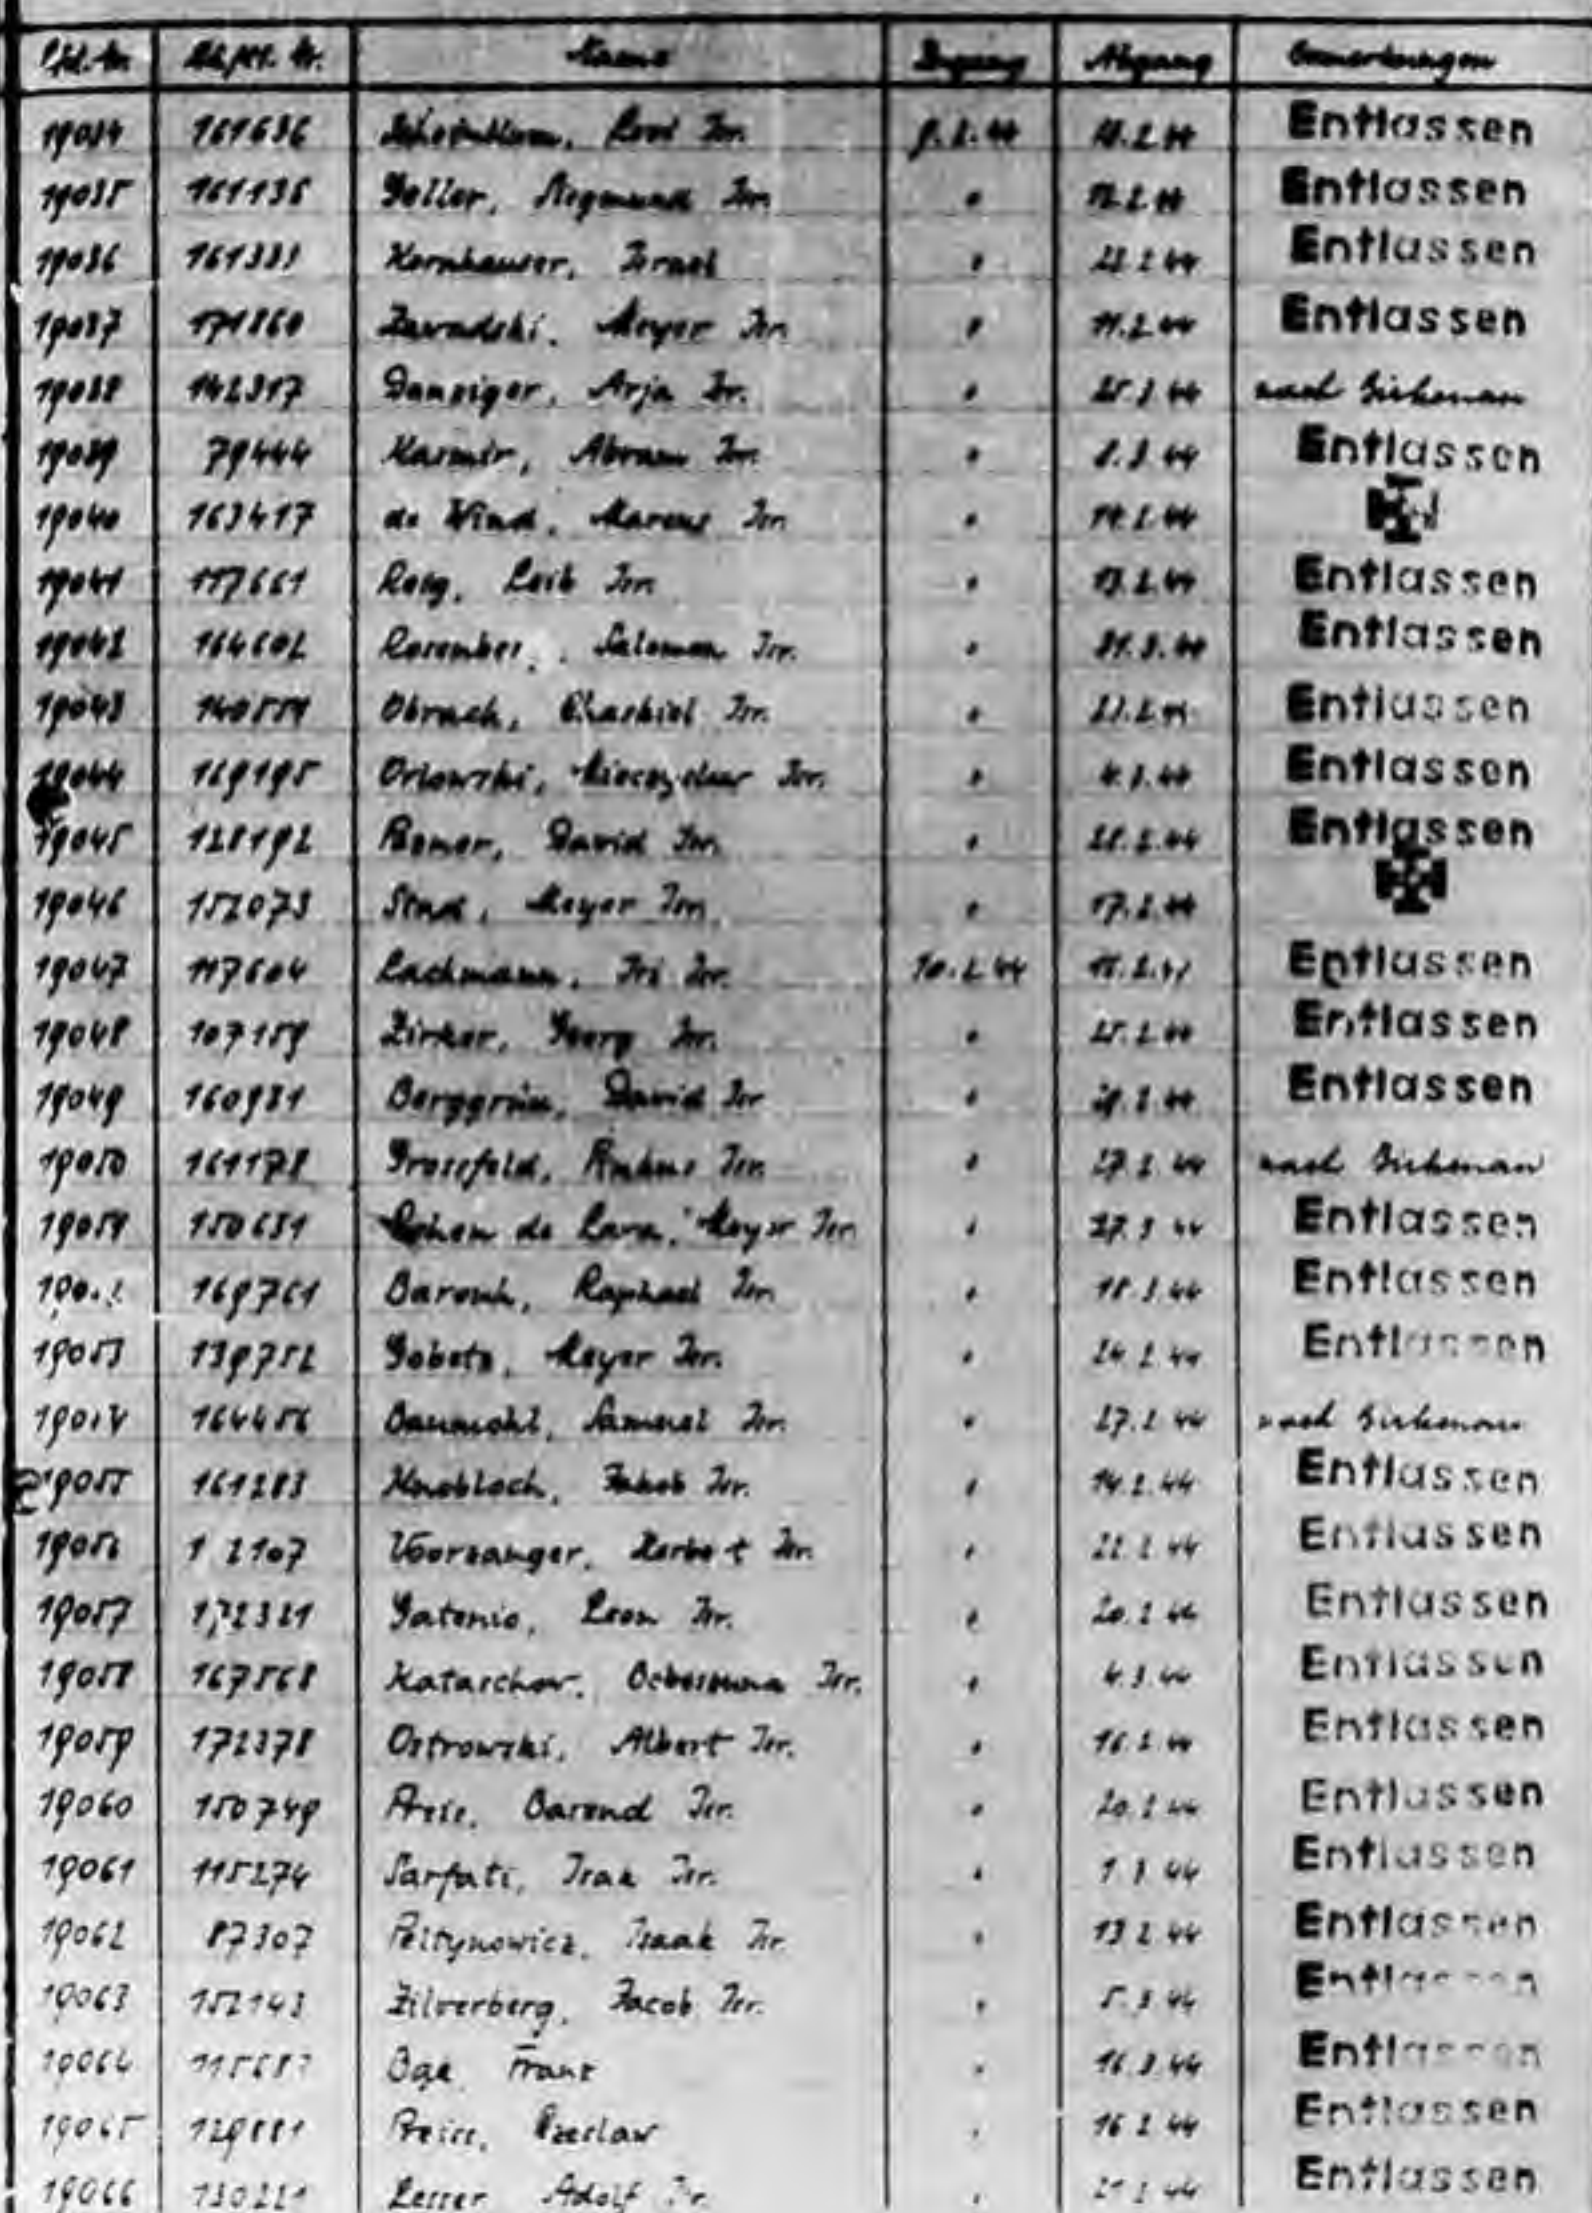 Lfd. Nr. Häftl. Nr. Name Zugang Abgang Bemerkungen
19034 161636 Isr. 9.2.44 Entlassen
19035 161136 Geller, Siegmund Isr. " Entlassen
19036 Kornhauser, Israel " Entlassen
19037 171860 Zawadski, Meyer Isr. " 11.2.44 Entlassen
19038 142317 Danziger, Arja Isr. " 25.3.44 nach Birkenau
19039 79444 Kasmir, Abram Isr. " 8.3.44 Entlassen
19040 163417 de Wind, Marcus Isr. "
19041 117661 Leib Isr. " 13.2.44 Entlassen
19042 164602 Salomon Isr. " Entlassen
19043 Obrach, Chaskiel Isr. " Entlassen
19044 169195 Orlowski, Isr. " 4.3.44 Entlassen
19045 128192 David Isr. " Entlassen
19046 152073 Meyer Isr. " 17.2.44
19047 117604 Lachmann, Isr. 10.2.44 Entlassen
19048 107159 Zirker, Georg Isr. " 25.2.44 Entlassen
19049 160931 Berggrün, David Isr. " Entlassen
19050 161178 Grossfeld, Isr. " 27.2.44 nach Birkenau
19051 150631 Cohen de Lara, Meyer Isr. " 27.3.44 Entlassen
169761 Barouh, Raphael Isr. " 18.3.44 Entlassen
19053 139752 Gobets, Meyer Isr. " 24.2.44 Entlassen
19054 164456 Baumohl, Samuel Isr. " 27.2.44 nach Birkenau
19055 161283 Knobloch, Jakob Isr. " 14.2.44 Entlassen
19056 Voorzanger, Herbert Isr. " 22.2.44 Entlassen
19057 172321 Gatenio, Leon Isr. " 20.2.44 Entlassen
19058 167568 Katarchow, Isr. " 4.3.44 Entlassen
19059 172378 Ostrowski, Albert Isr. " 16.2.44 Entlassen
19060 150749 Preis, Barend Isr. " 20.2.44 Entlassen
19061 115274 Sarfati, Isak Isr. " 1.3.44 Entlassen
19062 87307 Peltynowicz, Isaak Isr. " 13.2.44 Entlassen
19063 152143 Zilverberg, Jacob Isr. " 5.3.44 Entlassen
19064 Franz " 16.3.44 Entlassen
19065 Preiss, " 16.2.44 Entlassen
19066 Lesser Adolf Isr. " Entlassen